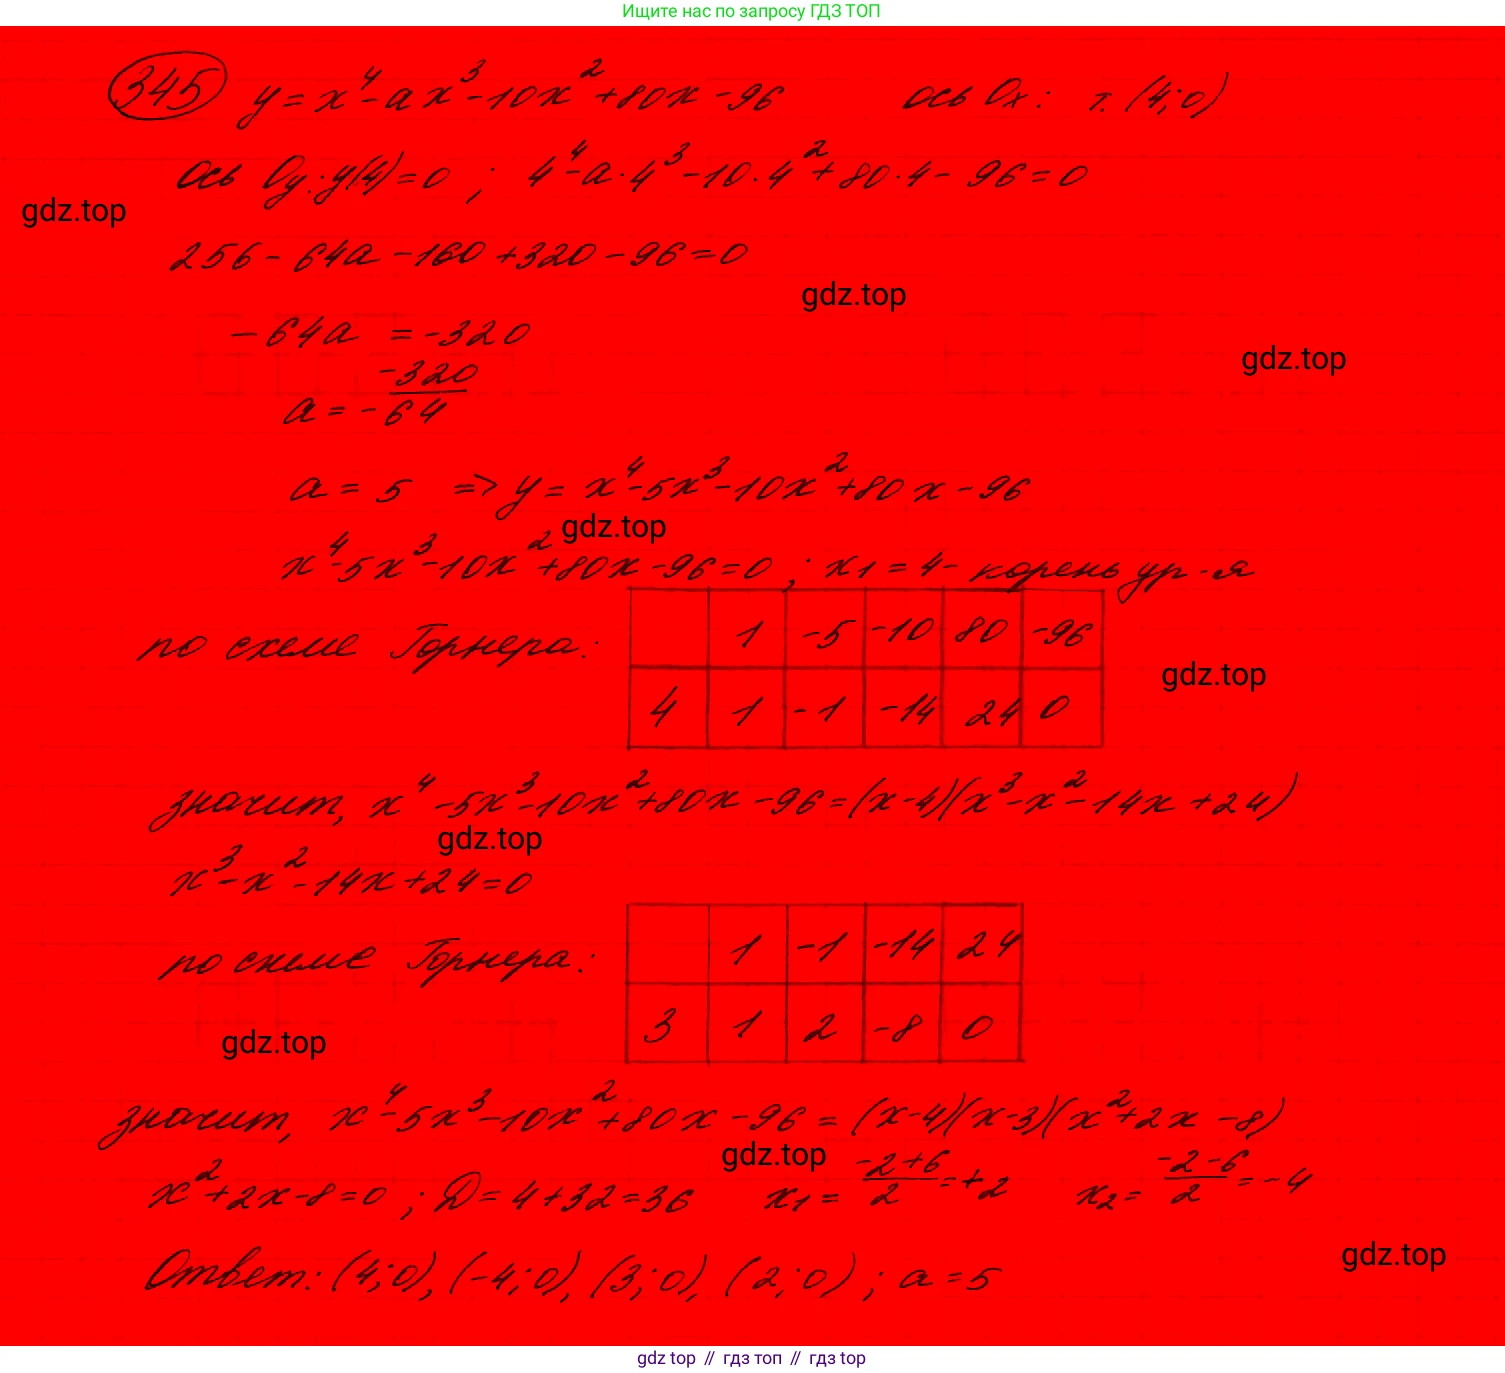 Ищите нас по запросу ГДЗ ТОП
345 y = x⁴ - ax³ - 10x² + 80x - 96 ось Ox: т. (4; 0)
ось Oy: y(4) = 0 ; 4⁴ - a · 4³ - 10 · 4² + 80 · 4 - 96 = 0
gdz.top
256 - 64a - 160 + 320 - 96 = 0
gdz.top
- 64a = -320
gdz.top
a = - -320/64
a = 5 => y = x⁴ - 5x³ - 10x² + 80x - 96
gdz.top
x⁴ - 5x³ - 10x² + 80x - 96 = 0 ; x₁ = 4 - корень ур-я
по схеме Горнера: 1 -5 -10 80 -96
gdz.top
4 1 -1 -14 24 0
значит, x⁴ - 5x³ - 10x² + 80x - 96 = (x-4)(x³ - x² - 14x + 24)
gdz.top
x³ - x² - 14x + 24 = 0
по схеме Горнера: 1 -1 -14 24
3 1 2 -8 0
gdz.top
значит, x⁴ - 5x³ - 10x² + 80x - 96 = (x-4)(x-3)(x² + 2x - 8)
gdz.top
x² + 2x - 8 = 0 ; D = 4 + 32 = 36 x₁ = (-2+6)/2 = +2 x₂ = (-2-6)/2 = -4
gdz.top
Ответ: (4; 0), (-4; 0), (3; 0), (2; 0) ; a = 5
gdz top // гдз топ // гдз top